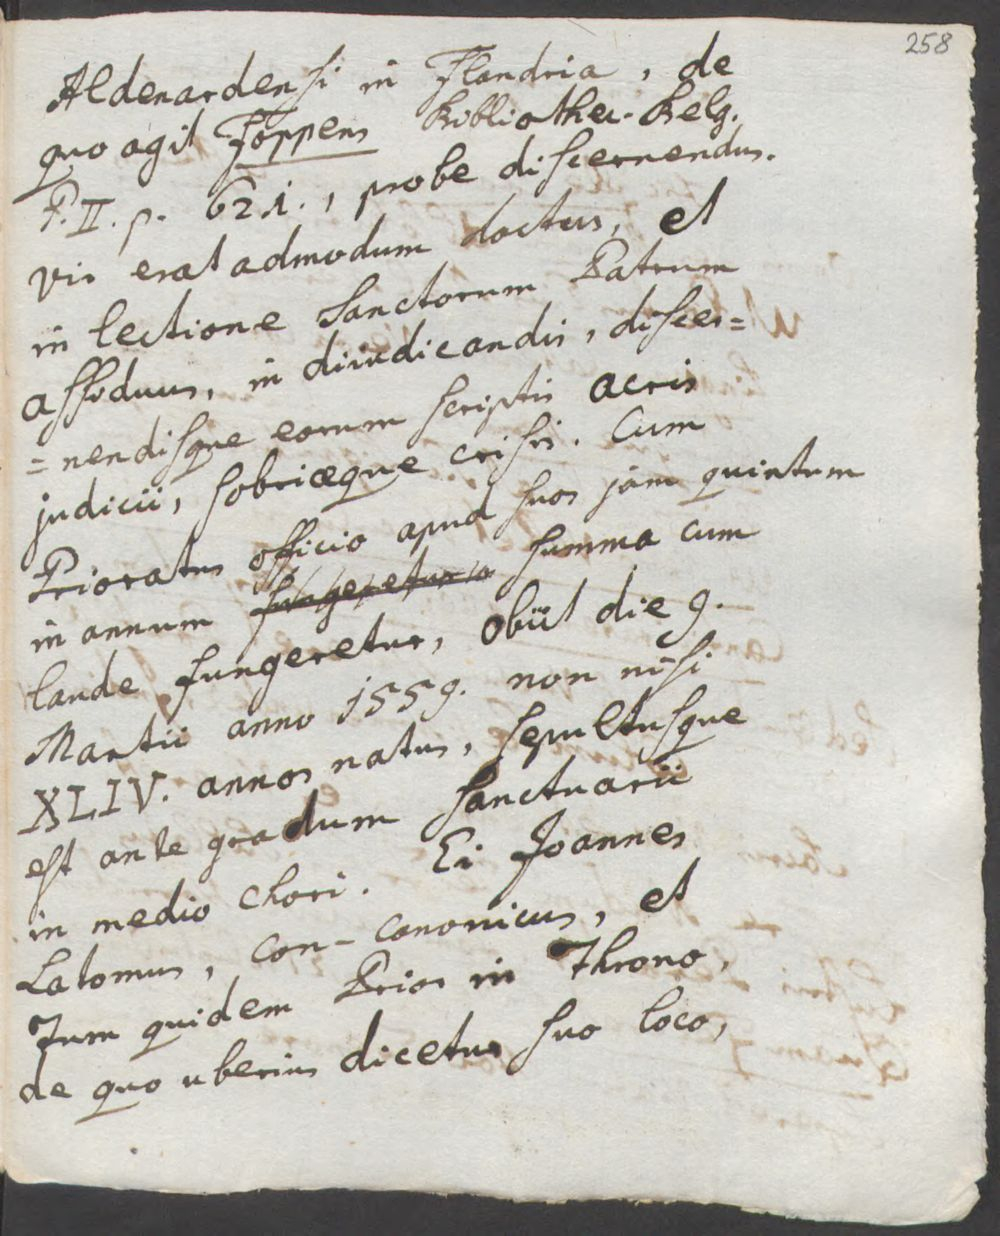 258
Aldenardensi in Flandria, de
quo agit Foppens Bibliothec. Belg.
P. II. p. 621., probe discernendus.
vir erat admodum doctus, et
in lectione Sanctorum Patrum
assiduus, in diiudicandis, discer=
=nendisque eorum scriptis acris
judicii, sobriæque crisis. Cum
Prioratus officio apud suos jam quintum
in annum fungeretur summa cum
laude fungeretur, obiit die 9.
Martii anno 1559. non nisi
XLIV. annos natus, sepultusque
est ante gradum Sanctuarii
in medio chori. Ei Joannes
Latomus, con-canonicus, et
Tum quidem Prior in Throno,
de quo uberius dicetur suo loco,